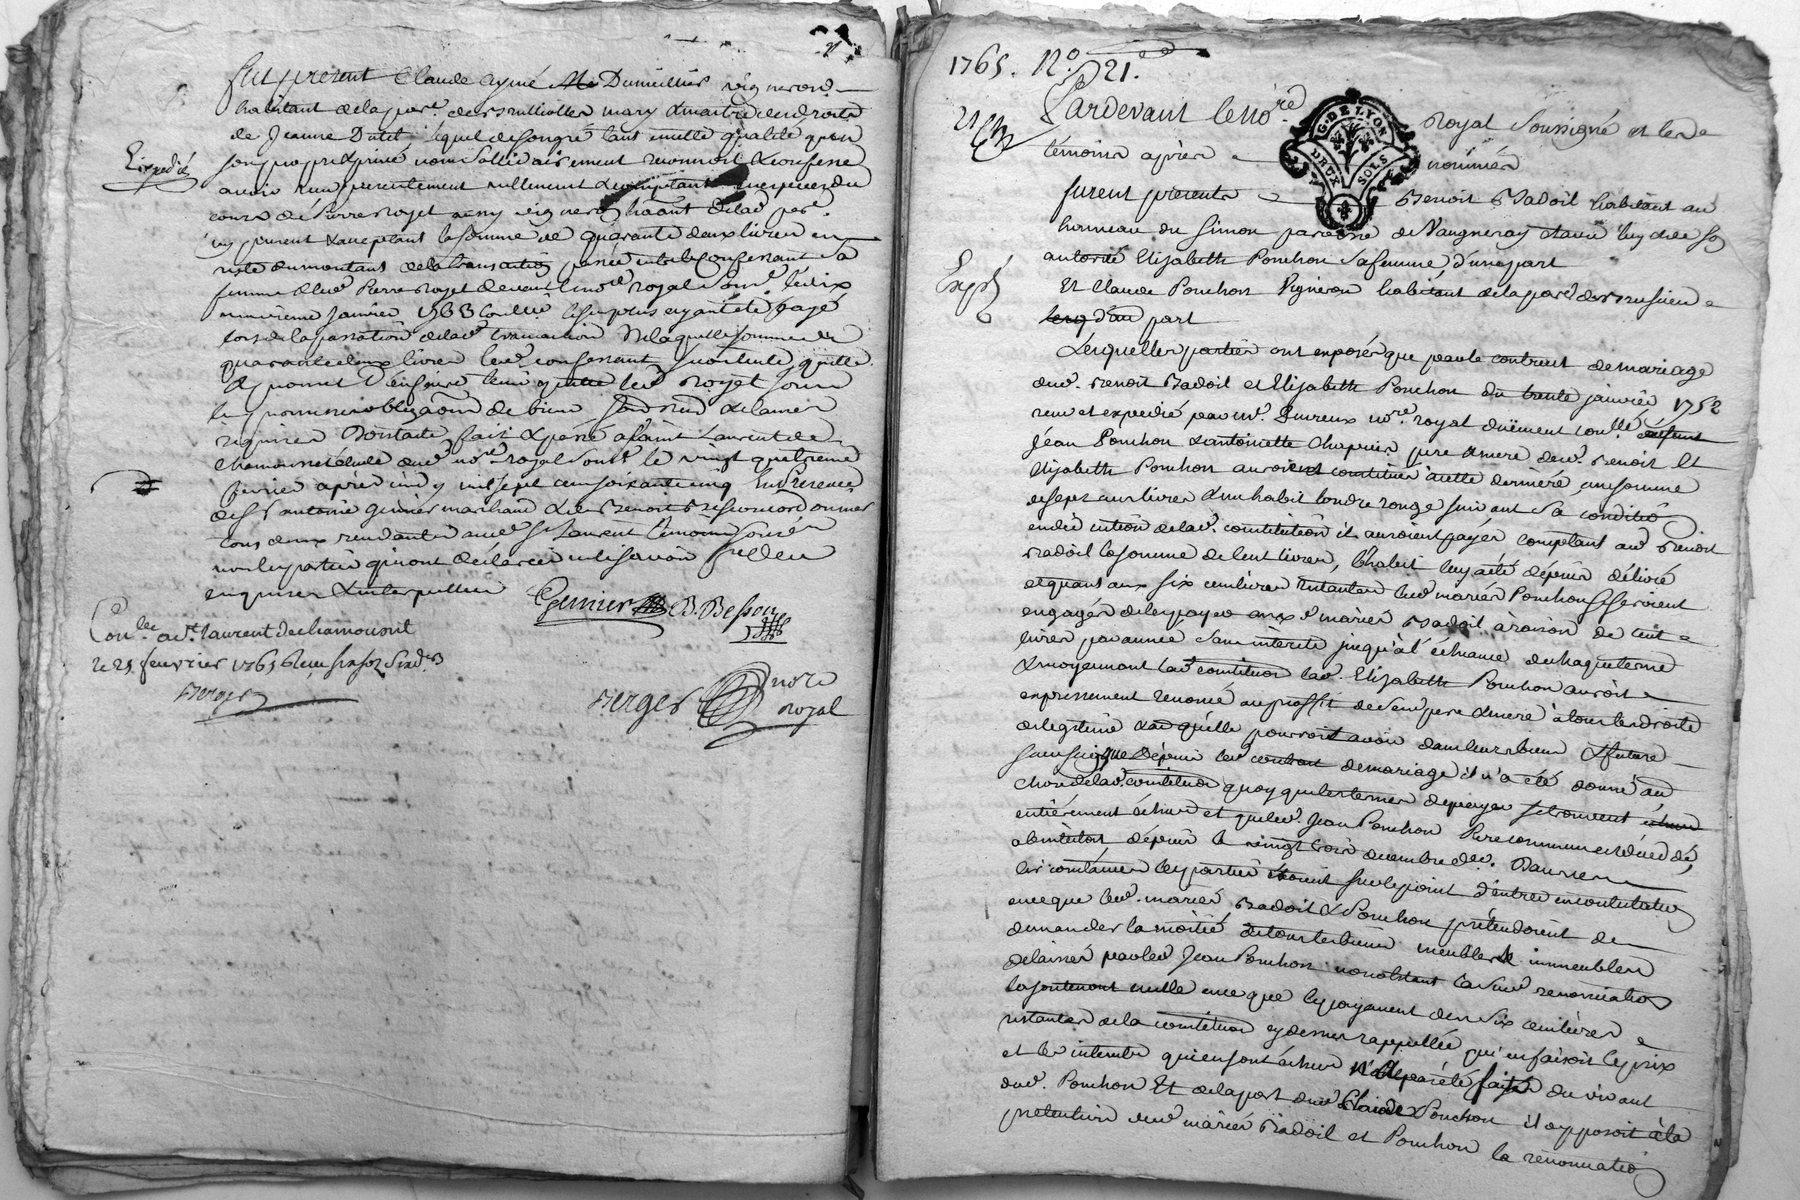 fut présent Claude Aymé Dumillier vigneron
habitant de la par. mary & maitre des droits
de Jeanne Dutel lequel de son gré tant en cette qualité qu'en
son propre & privé nom sollidairement reconnoit & confesse
Expedié
avoir reçu presentement réellement & comptant en especes du
cours de Pierre royet aussy vigneron hãant de lad. par.
cy present & acceptant la somme de quarante deux livres en
reste du montant de la transaction passée entre le confessant sa
femme & led. Pierre Royet devant le no.re royal sous. le dix
neuvieme janvier 1763 Conllé le surplus ayant été payé
lors de la passation de lad. transaction de laquelle somme de
quarante deux livres led. confessant content & quitte
& promet d'en faire tenir quitte led. Royet sous
les promesses obligãons de biens
requises Dont acte fait & passé a saint Laurent de
Chamousset étude dud. no.re royal sous. le vingt quatrieme
fevrier apres midy mil sept cent soixante cinq En Presence
de s. antoine genier marchand & de Benoit Besson cordonnier
tous deux demeurants aud. St Laurent témoins sous.
non les parties qui ont declaré ne le savoir de ce
enquises & interpellées
Genier B. Besson
Con.lé a st. laurent de chamousset
le 25 fevrier 1765 Reçu
Berger
Berger no.re
royal
1765. No. 21.
21
Pardevant le no.re royal soussigné et les
G. DE LYON
DEUX SOLS
témoins après nommés
furent présents Benoit Badoil habitant au
hameau du Simon paroisse de Vaugneray & avec luy & de so
autorité Elizabeth Ponchon sa femme, d'une part
Expé
Et Claude Ponchon Vigneron habitant de la par. de Brussieu
d'au. part
Lesquelles parties ont exposé que par le contract de mariage
dud. Benoit Badoil et Elizabeth Ponchon du trente janvier 1752
reçu et expedié par m.e no.re royal düement con.llé
Jean Ponchon & antoinette Chapuis pere & mere desd. Benoit Et
Elizabeth Ponchon auroient constitué a cette derniere, une somme
de sept cent livres & un habit londre rouge suivant sa condition
en déduction de lad. constitution il auroient payés comptant aud Benoit
Badoil la somme de cent livres, l'habit luy a été dépuis délivré
et quant aux six cent livres restantes led. mariés Ponchon se seroient
engagés de les payer aux d. mariés Badoil à raison de cent
livres par année sans interets jusqu'à l'échéance de chaque terme
& moyennant lad. constitution lad. Elizabeth Ponchon auroit
expressement renoncé au profit de ses pere & mere à tous les droits
de legitime & au. qu'elle pourroit avoir dans leurs biens & future
succession Dépuis led. contract de mariage il n'a été donné au
chon de lad. constitution quoyque les termes de payer se trouvent échus
entiérement échus et que led. Jean Ponchon Pere commun est décédé
abintestat dépuis le vingt trois decembre der. Dans ces
circonstances les parties étoient sur le point d'entrer en contestation
en ce que led. mariés Badoil & Ponchon prétendoient de
demander la moitié de tous les biens meubles & immeubles
délaissés par led. Jean Ponchon nonobstant lad. renonciation
la soutenant nulle en ce que le payement des six cent livres
restantes de la constitution cy dessus rappellée qui en faisoit le prix
et les interets qui en sont échus n'a pas été fait du vivant
dud. Ponchon Et de la part dud. Claude Ponchon il opposoit à la
prétention desd. mariés Badoil et Ponchon la renonciation